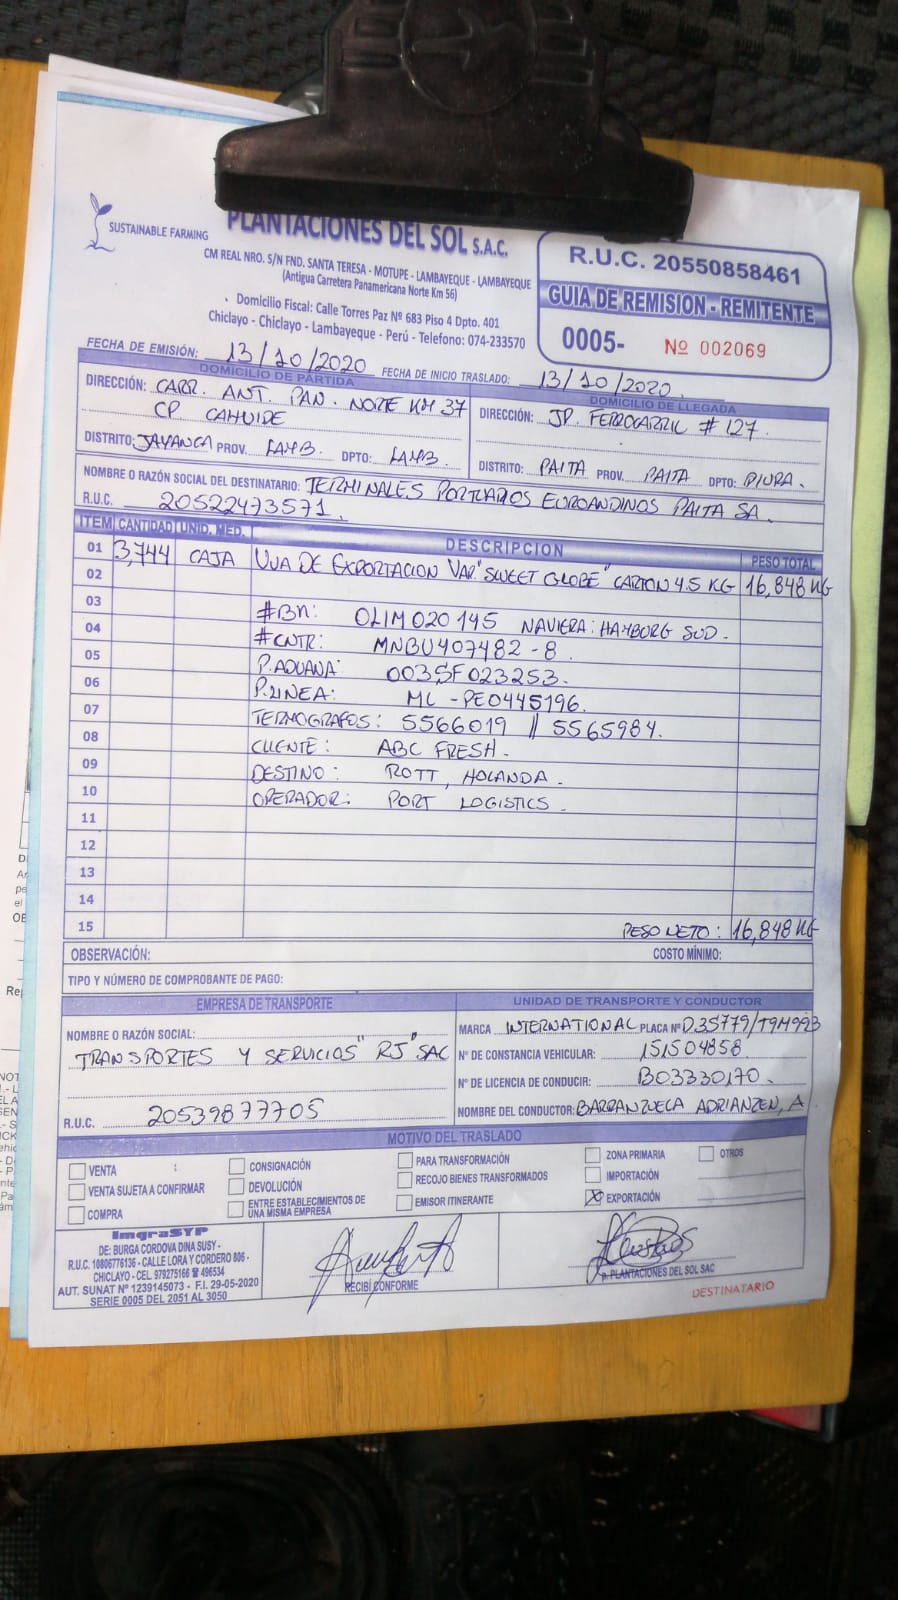 SUSTAINABLE FARMING
PLANTACIONES DEL SOL S.A.C.
CM REAL NRO. S/N FND. SANTA TERESA - MOTUPE - LAMBAYEQUE - LAMBAYEQUE
(Antigua Carretera Panamericana Norte Km 56)
Domicilio Fiscal: Calle Torres Paz Nº 683 Piso 4 Dpto. 401
Chiclayo - Chiclayo - Lambayeque - Perú - Telefono: 074-233570
R.U.C. 20550858461
GUIA DE REMISION - REMITENTE
0005- Nº 002069
FECHA DE EMISIÓN: 13/10/2020 FECHA DE INICIO TRASLADO: 13/10/2020
DOMICILIO DE PARTIDA
DIRECCIÓN: CARR. ANT. PAN. NORTE KM 37
CP CAHUIDE
DISTRITO: JAYANCA PROV. LAMB. DPTO: LAMB.
DOMICILIO DE LLEGADA
DIRECCIÓN: JP. FERROCARRIL # 127.
DISTRITO: PAITA PROV. PAITA DPTO: PIURA.
NOMBRE O RAZÓN SOCIAL DEL DESTINATARIO: TERMINALES PORTUARIOS EUROANDINOS PAITA SA.
R.U.C. 20522473571.
ITEM CANTIDAD UNID. MED. DESCRIPCION PESO TOTAL
01 3,744 CAJA UVA DE EXPORTACION VAR "SWEET GLOBE" CARTON 4.5 KG 16,848 KG
02
03 #BK: OLIM020145 NAVIERA: HAMBURG SUD.
04 #CNTR: MNBU407482-8.
05 P.ADUANA: 003SF023253.
06 P.LINEA: ML-PE0445196.
07 TERMOGRAFOS: 5566019 // 5565984.
08 CLIENTE: ABC FRESH.
09 DESTINO: ROTT, HOLANDA.
10 OPERADOR: PORT LOGISTICS
11
12
13
14
15 PESO NETO: 16,848 KG
OBSERVACIÓN: COSTO MÍNIMO:
TIPO Y NÚMERO DE COMPROBANTE DE PAGO:
EMPRESA DE TRANSPORTE
NOMBRE O RAZÓN SOCIAL:
TRANSPORTES Y SERVICIOS "RJ" SAC
R.U.C. 20539877705
UNIDAD DE TRANSPORTE Y CONDUCTOR
MARCA INTERNATIONAL PLACA Nº D35779/T9M993
Nº DE CONSTANCIA VEHICULAR: 151504858
Nº DE LICENCIA DE CONDUCIR: B03330170.
NOMBRE DEL CONDUCTOR: BARRANZUELA ADRIANZEN, A
MOTIVO DEL TRASLADO
VENTA CONSIGNACIÓN PARA TRANSFORMACIÓN ZONA PRIMARIA OTROS
VENTA SUJETA A CONFIRMAR DEVOLUCIÓN RECOJO BIENES TRANSFORMADOS IMPORTACIÓN
COMPRA ENTRE ESTABLECIMIENTOS DE UNA MISMA EMPRESA EMISOR ITINERANTE X EXPORTACIÓN
ImgraSYP
DE: BURGA CORDOVA DINA SUSY -
R.U.C. 10806776136 - CALLE LORA Y CORDERO 806 -
CHICLAYO - CEL. 979275166 ☎ 496534
AUT. SUNAT Nº 1239145073 - F.I. 29-05-2020
SERIE 0005 DEL 2051 AL 3050
RECIBÍ CONFORME
p. PLANTACIONES DEL SOL SAC
DESTINATARIO